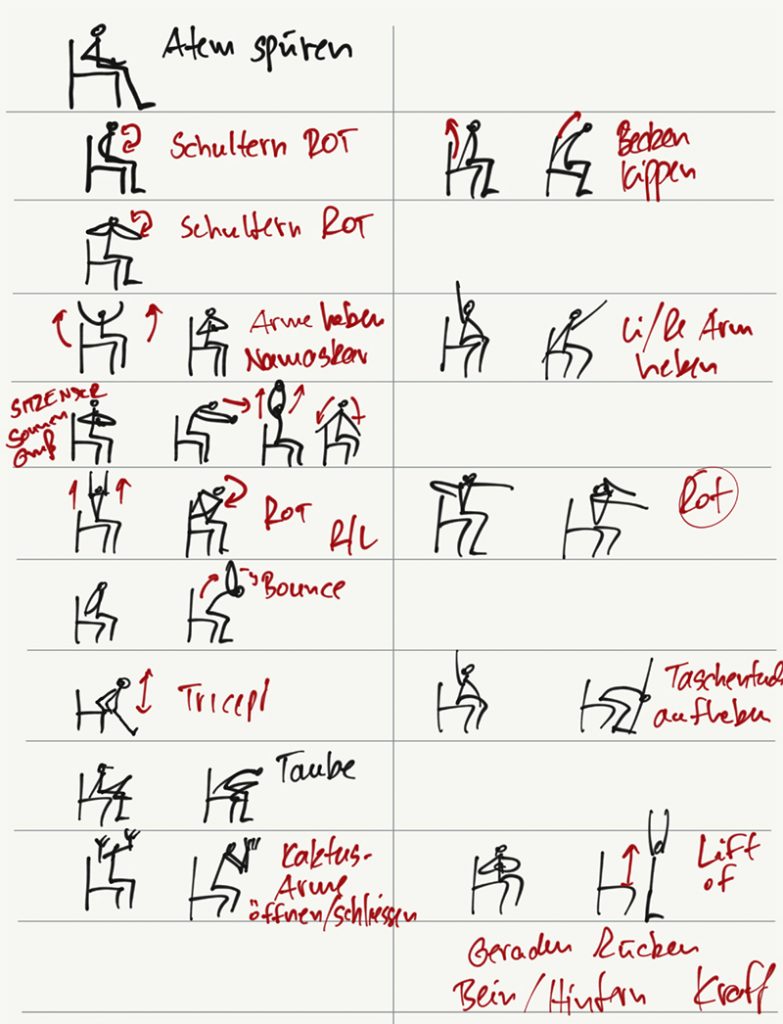 Atem spüren
Schultern ROT
Becken
kippen
Schultern ROT
Arme heben
Namaskar
Li/Re Arm
heben
SITZENDER
Sonnen
Gruß
ROT
R/L
Rot
Bounce
Tricept
Taschentuch
aufheben
Taube
Kaktus-
Arme
öffnen/schliessen
Lift
of
Geraden Rücken
Bein/Hintern Kraft